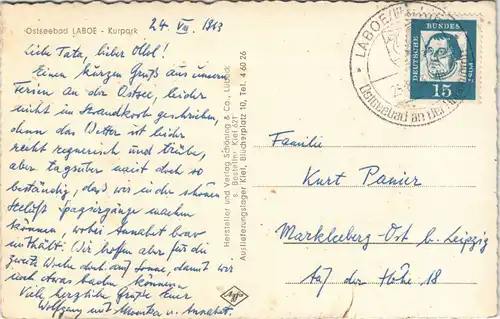 Ostseebad LABOE - Kurpark
24. VIII. 1963
Liebe Tata, lieber Ollol!
Einen kurzen Gruß aus unseren
Ferien an der Ostsee, leider
nicht im Strandkorb geschrieben,
denn das Wetter ist leider
recht regnerisch und trübe,
aber tagsüber meist doch so
beständig, daß wir in der schönen
Seeluft Spaziergänge machen
können, wobei Annabet brav
mithält. Wir hoffen aber für die
zweite Woche doch auf Sonne, damit wir
noch etwas baden können.
Viele herzliche Grüße Euer
Wolfgang mit Monika u. Annabet.
Hersteller und Verlag Schöning & Co., Lübeck
s. Bestellnr. Kiel 621
Auslieferungslager Kiel, Blücherplatz 10, Tel. 4 60 26
LABOE
Ostseebad an der
DEUTSCHE BUNDESPOST
15
Familie
Kurt Panier
Markkleeberg-Ost b. Leipzig
Auf der Höhe 18